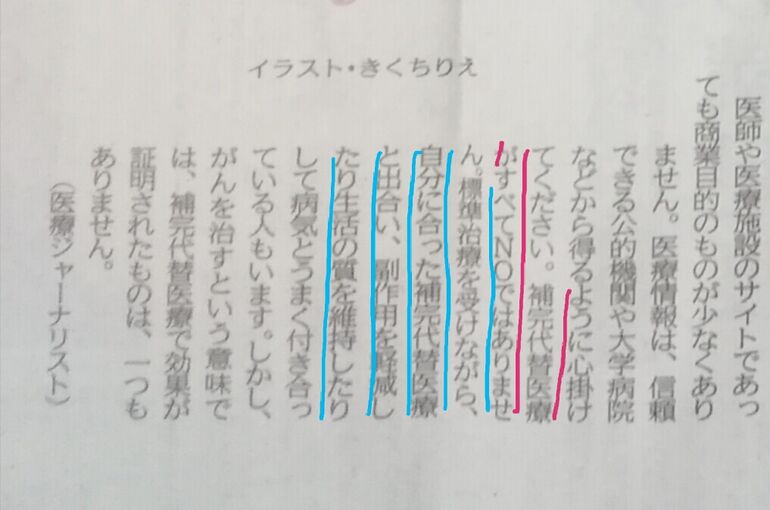 イラスト・きくちりえ
医師や医療施設のサイトであっ
ても商業目的のものが少なくあり
ません。医療情報は、信頼
できる公的機関や大学病院
などから得るように心掛け
てください。補完代替医療
がすべてNOではありませ
ん。標準治療を受けながら、
自分に合った補完代替医療
と出合い、副作用を軽減し
たり生活の質を維持したり
して病気とうまく付き合っ
ている人もいます。しかし、
がんを治すという意味で
は、補完代替医療で効果が
証明されたものは、一つも
ありません。
(医療ジャーナリスト)